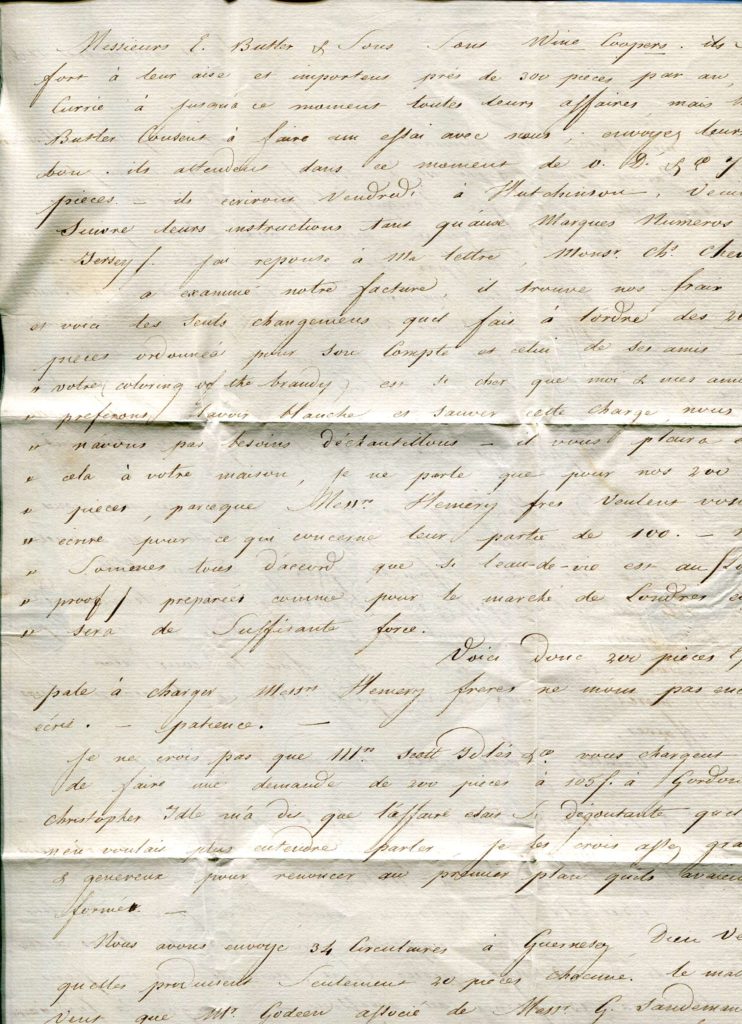 Messieurs E. Butler & Sons Sont Wine Coopers. ils
fort à leur aise et importent près de 300 pièces par an,
Currie à jusqua ce moment toutes leurs affaires, mais
Butler Consent à faire un essai avec nous; envoyez leurs
bon. ils attendent dans ce moment de
pièces. — ils écriront Vendredi à Hutchinson,
Suivre leurs instructions tant quaux Marques Numeros
Jersey / Jai reponse à Ma lettre Monsr. Chs.
a examiné notre facture, il trouve nos frais
et voici les seuls changemens quil fait à lordre des 20
pièces ordonnés pour son Compte et celui de ses amis
" votre (coloring of the brandy) est si cher que moi & mes amis
" preferons lavoir blanche et sauver cette charge, nous
" navons pas besoins déchantillons — il vous plaira
" cela à votre maison, Je ne parle que pour nos 200
" pièces, parceque Messrs. Hemery fres Veulent vous
" écrire pour ce qui concerne leur partie de 100. —
" Sommes tous d'accord que si leau-de-vie est au
" proof / preparés comme pour le marché de Londres
" sera de Suffisante force.
Voici donc 200 pièces
pale à charger, Messrs Hemery freres ne mont pas enc
écris. — patience. —
Je ne crois pas que Mrs. Scott Idles & Co. vous chargent
de faire une demande de 200 pièces à 105f. à Gordon
Christopher Idle m'a dis que l'affaire étais si dégoutante quil
n'en voulais plus entendre parler, Je les crois assez gra
& genereux pour renoncer au premier plan quils avaien
formés. —
Nous avons envoyé 34 Circulaires à Guernesey Dieu Ve
quelles produisent Seulement 20 pièces chacune. le mal
Vent que Mr. Godeen associé de Messrs G. Sandeman